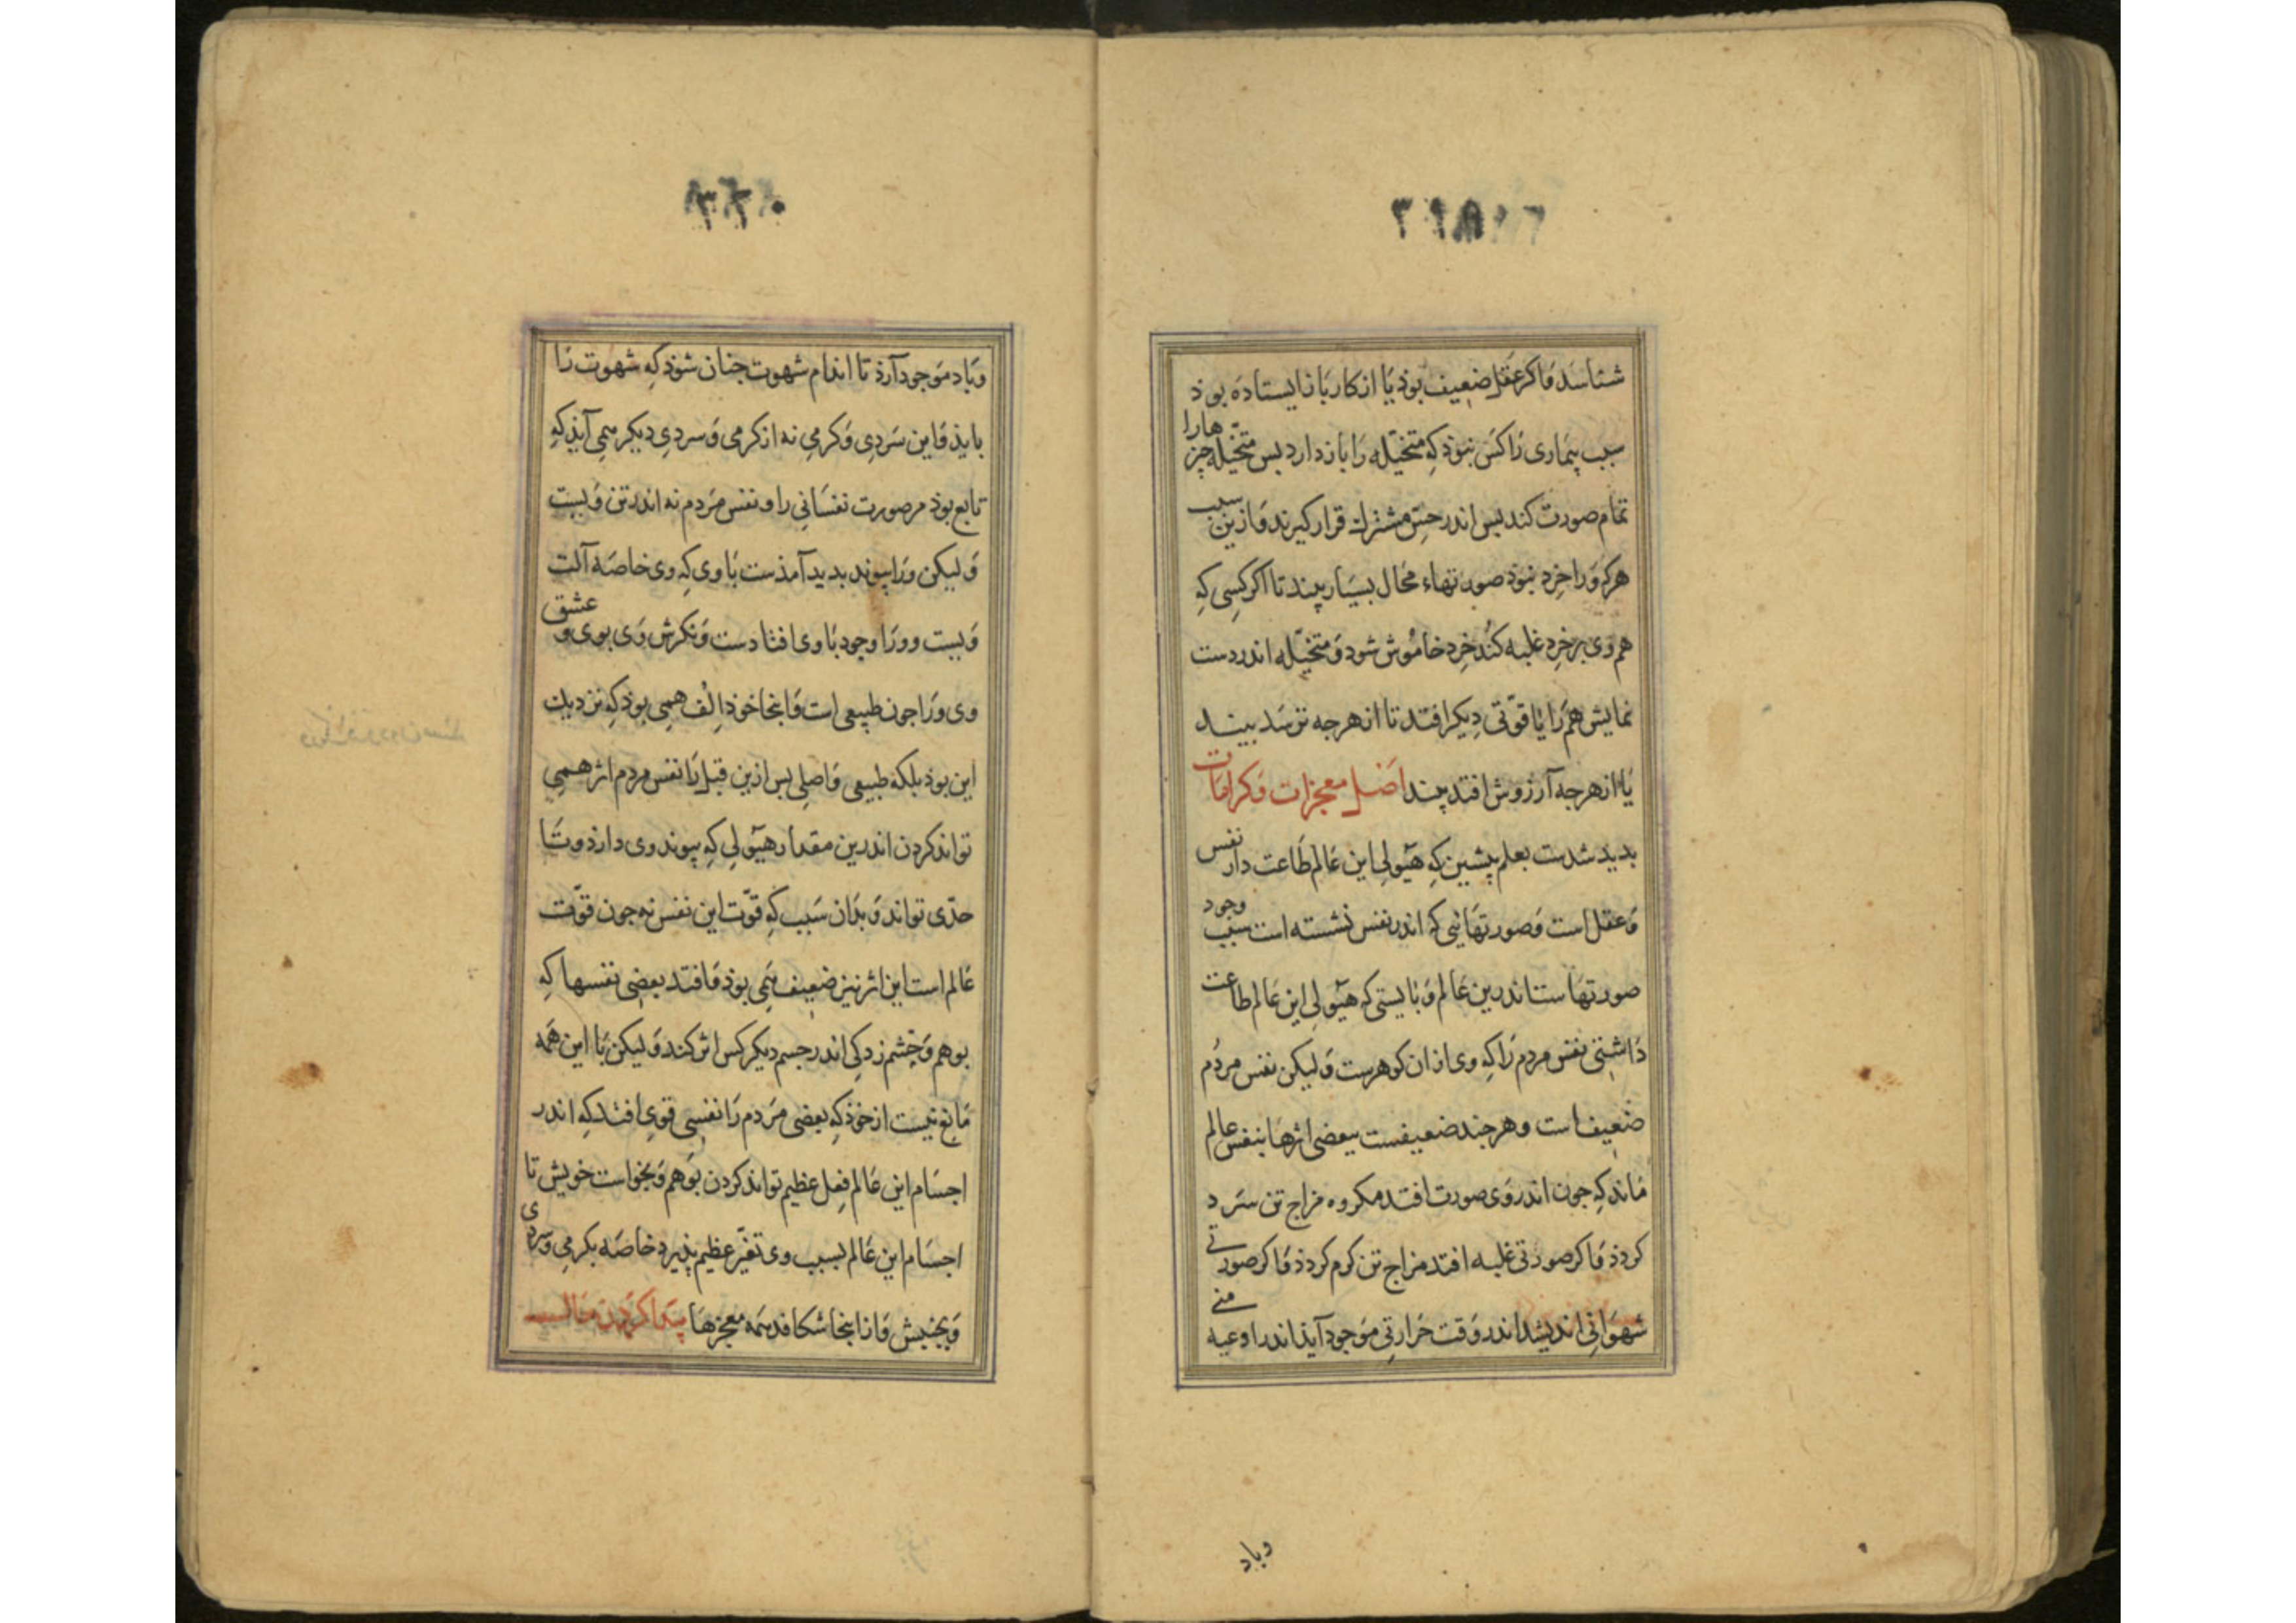 شناسد و اکر عقل ضعیف بوذ یا از کار باز ایستاده بوذ
سبب بیماری را کس نبوذ که متخیله را باز دارد بس متخیله چیزهارا
تمام صورت کند بس اندر حس مشترك قرار کیرند و ازین سبب
هرکه ورا خرد نبوذ صورتهاء محال بسیار بیند تا اکر کسی که
هم وی بر خرد غلبه کند خرد خاموش شود و متخیله اندر دست
نمایش هم را یا قوتی دیکر افتد تا از هرجه ترسد بیند
یا از هرجه آرزوش افتد بیند اصل معجزات و کرامات
بدید شدست بعلم پیشین که هیولی این عالم طاعت دار نفس
و عقل است و صورتهایی که اندر نفس نشسته است سبب وجود
صورتهاست اندرین عالم و بایستی که هیولی این عالم طاعت
داشتی نفس مردم را که وی از ان کوهرست و لیکن نفس مردم
ضعیف است و هرجند ضعیفست ببعضی اثرها بنفس عالم
ماند که جون اندر وی صورت افتد مکروه مزاج تن سرد
کردذ و اکر صورتی غلبه افتد مزاج تن کرم کردذ و اکر صورتی
شهوانی اندیشد اندر وقت حرارتی موجود آیذ اندر اوعیه منی
وباد
وباد موجود آرذ تا اندام شهوت جنان شوذ که شهوت را
بایذ و این سردی و کرمی نه از کرمی و سردی دیکر همی آیذ که
تابع بوذ مر صورت نفسانی را و نفس مردم نه اندر تن ویست
و لیکن ورا پیوند بدید آمذست با وی که وی خاصه آلت
ویست و ورا وجود با وی افتادست و نکرش وی بوی و عشق
وی ورا جون طبیعی است و اینجا خوذ الف همی بوذ که نزدیك
این بوذ بلکه طبیعی و اصلی بس ازین قبل را نفس مردم اثر همی
تواند کردن اندرین مقدار هیولی که پیوند وی دارذ و تا
حدی تواند و بدان سبب که قوت این نفس نه جون قوت
عالم است این اثر نیز ضعیف همی بوذ و افتد بعضی نفسها که
بوهم و چشم زدکی اندر جسم دیکر کس اثر کند و لیکن با این همه
مانع نیست از خوذ که بعضی مردم را نفسی قوی افتد که اندر
اجسام این عالم فعل عظیم تواند کردن بوهم و بخواست خویش تا
اجسام این عالم بسبب وی تغیر عظیم پذیرد خاصه بکرمی و سردی
و بجنبش و از اینجا شکافد همه معجزها پیدا کردن حال